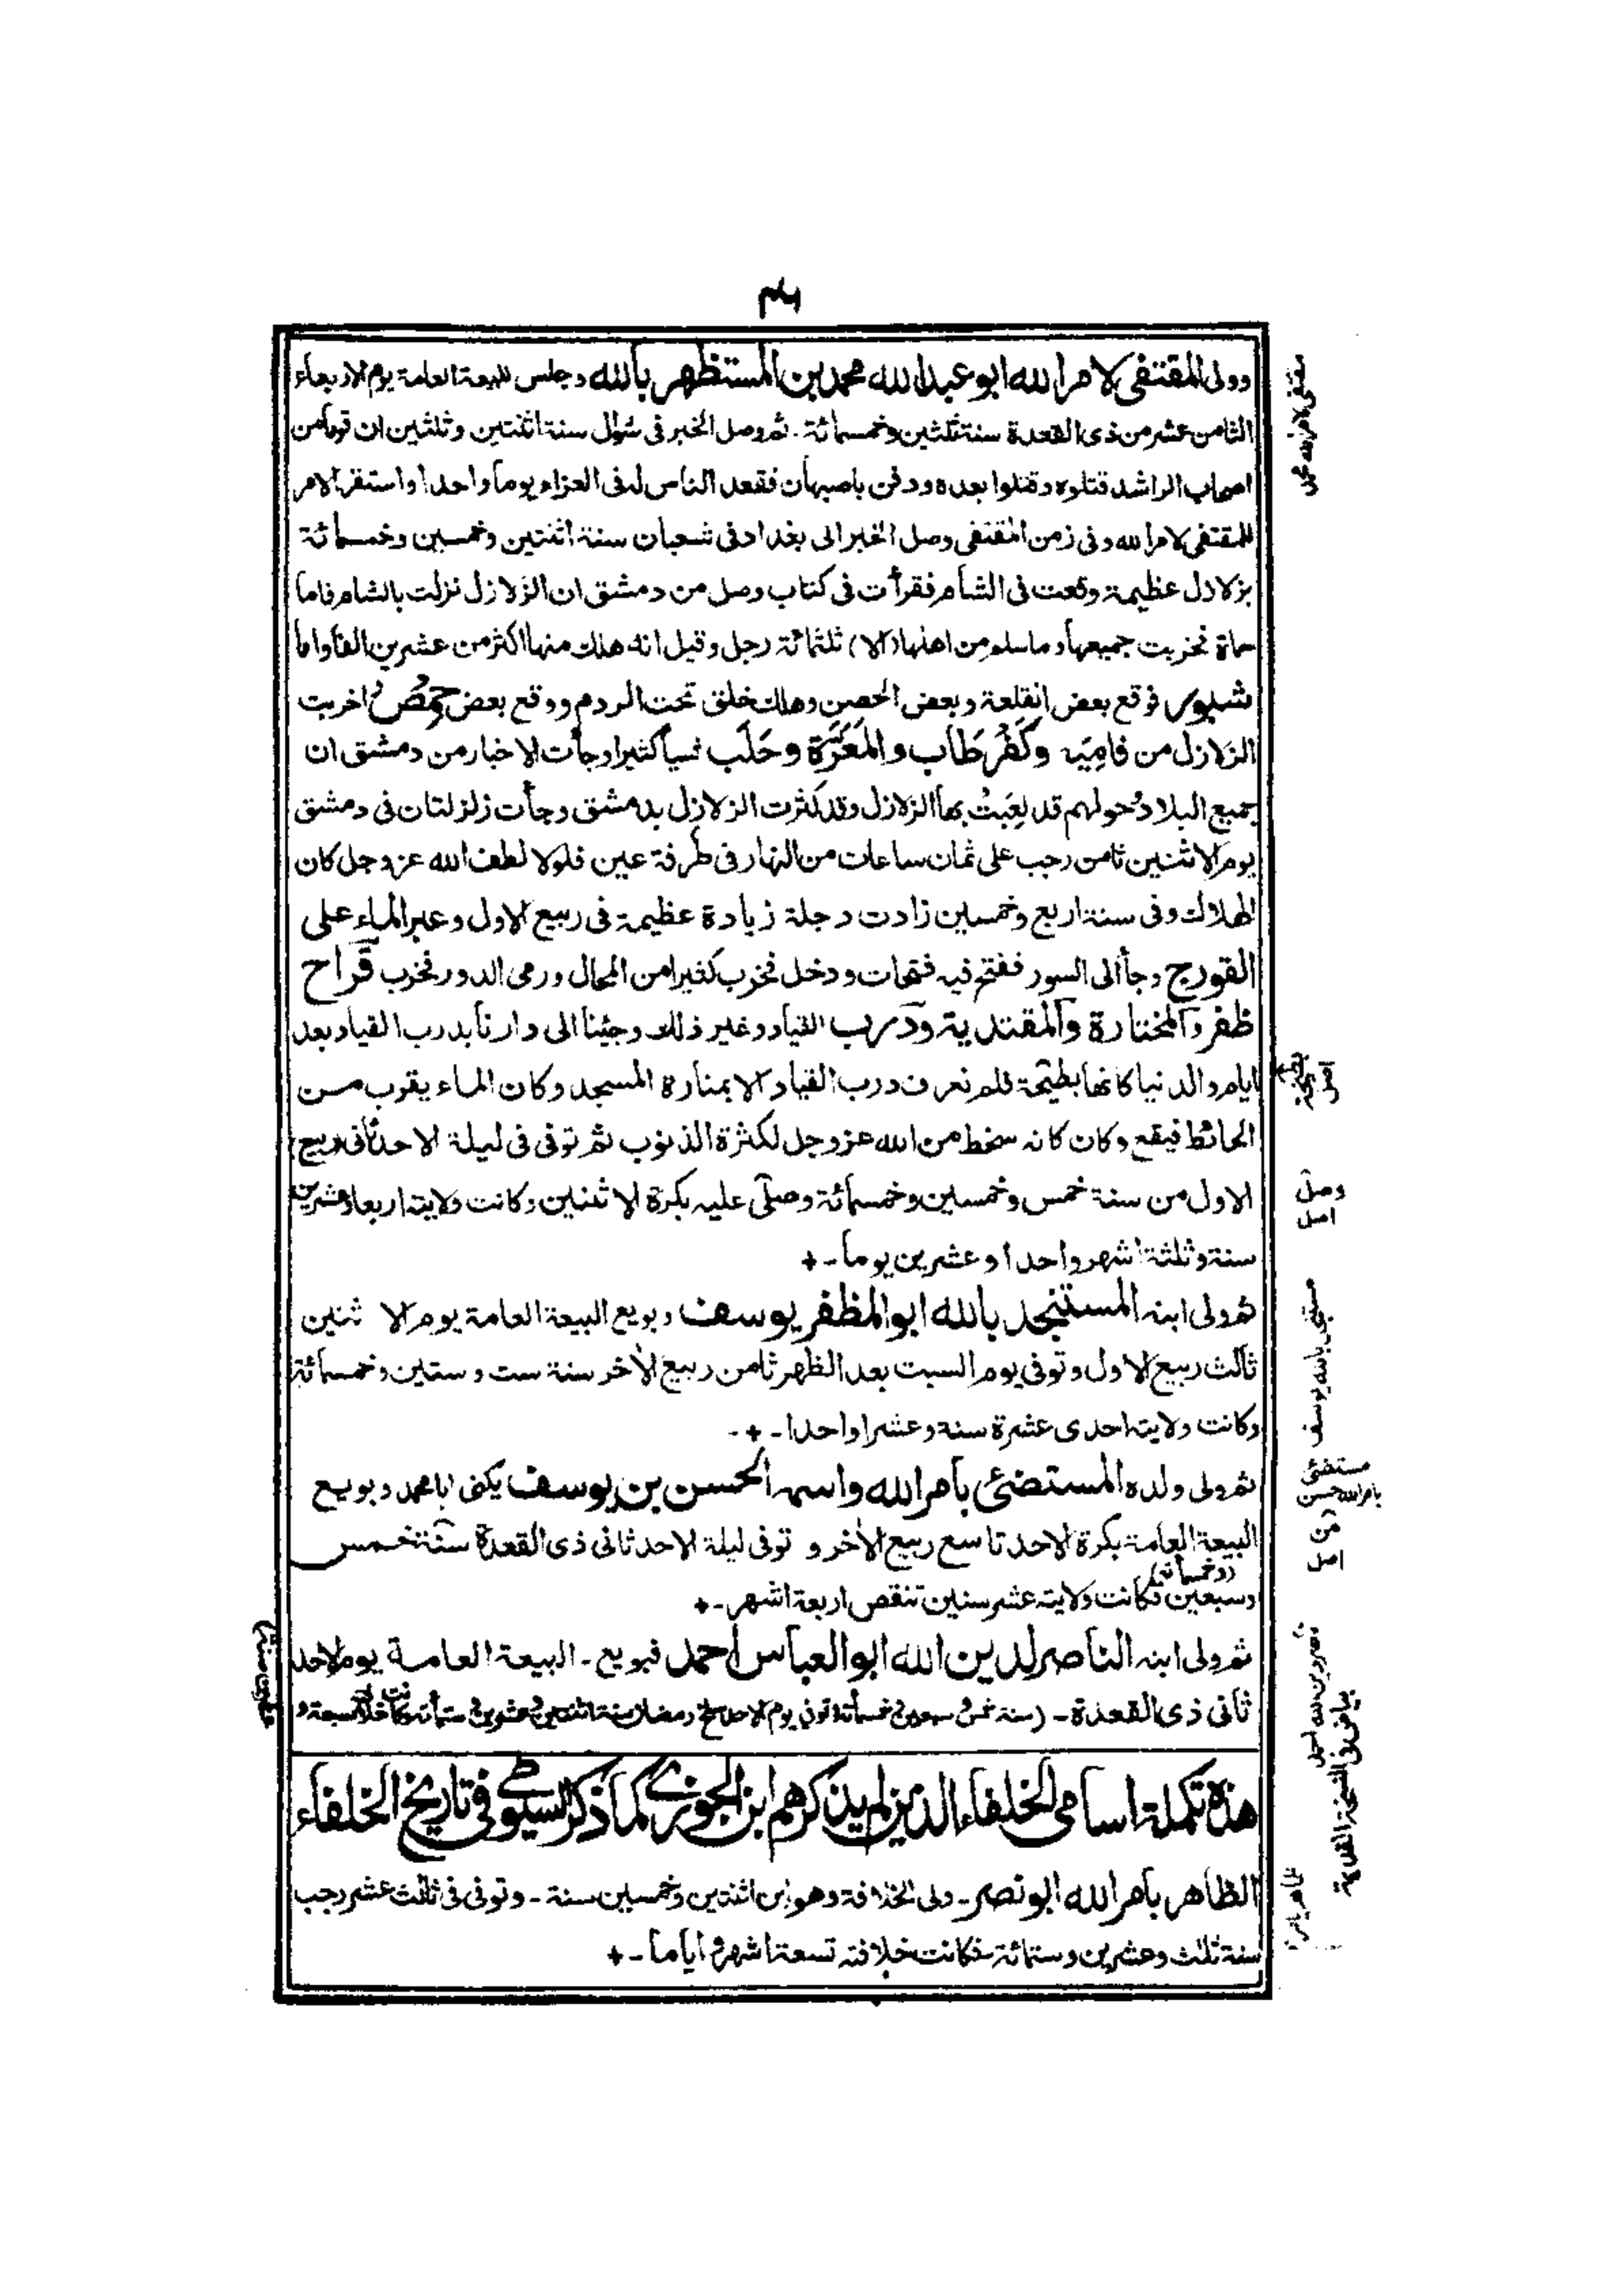 وولى المقتفى لامر الله ابو عبد الله محمد بن المستظهر بالله وجلس للبيعة العامة يوم الاربعاء
الثامن عشر من ذى القعدة سنة ثلثين وخمسمائة۔ ثم وصل الخبر فى شوال سنة اثنتين وثلثين ان قوماً من
اصحاب الراشد قتلوه وقتلوا بعده ودفن باصبهان فقعد الناس له فى العزاء يوماً واحداً واستقر الامر
للمقتفى لامر الله وفى زمن المقتفى وصل الخبر الى بغداد فى شعبان سنة اثنتين وخمسين وخمسمائة
بزلازل عظيمة وقعت فى الشام فقرأت فى كتاب وصل من دمشق ان الزلازل نزلت بالشام فاما
حماة فخربت جميعها وما سلم من اهلها (الا) ثلثمائة رجل وقيل انه هلك منها اكثر من عشرين الفاً واما
شيزر فوقع بعض القلعة وبعض الحصن وهلك خلق تحت الردم ووقع بعض حِمْص اخربت
الزلازل من فامِيَه وكَفْرطَاب والمَعَرَّة وحَلَب شيأ كثيرا وجأت الاخبار من دمشق ان
جميع البلاد حولهم قد لعِبَتْ بها الزلازل وقد كثرت الزلازل بدمشق وجأت زلزلتان فى دمشق
يوم الاثنين ثامن رجب على ثمان ساعات من النهار فى طرفة عين فلولا لطف الله عز وجل كان
الهلاك وفى سنة اربع وخمسين زادت دجلة زيادة عظيمة فى ربيع الاول وعبر الماء على
القورج وجأ الى السور ففتح فيه فتحات ودخل فخرب كثيرا من المحال ورمى الدور فخرب قراح
ظفر والمختارة والمقتدية ودرب القيار وغير ذلك وجئنا الى دارنا بدرب القيار بعد
ايام والدنيا كانها بطيحة فلم نعرف درب القيار الا بمنارة المسجد وكان الماء يقرب مــن
الحائط فيقع وكان كانه سخط من الله عز وجل لكثرة الذنوب ثم توفى فى ليلة الاحد ثانى ربيع
الاول من سنة خمس وخمسين وخمسمائة وصلّى عليه بكرة الاثنين وكانت ولايته اربعا وعشرين
سنة وثلثة اشهر واحدا وعشرين يوماً۔+
ثم ولى ابنه المستنجد بالله ابو المظفر يوسف وبويع البيعة العامة يوم الاثنين
ثالث ربيع الاول وتوفى يوم السبت بعد الظهر ثامن ربيع الأخر سنة ست وستين وخمسمائة
وكانت ولايته احدى عشرة سنة وعشرا واحدا۔+۔
ثم ولى ولده المستضئ بأمر الله واسمه الحسن بن يوسف يكنى ابا محمد وبويـع
البيعة العامة بكرة الاحد تاسع ربيع الأخر و توفى ليلة الاحد ثانى ذى القعدة سنة خمس
وسبعين (وخمسمائة) فكانت ولايته عشر سنين تنقص اربعة اشهر۔+
ثم ولى ابنه الناصر لدين الله ابو العباس احمد فبويع۔ البيعة العامة يوم الاحد
ثانى ذى القعدة۔ (سنة خمس وسبعين وخمسمائة وتوفى يوم الاحد سلخ رمضان سنة اثنتين وعشرين وستمائة وكانت خلافته سبعة و
هذه تكملة اسامى الخلفاء الذين لم يذكرهم ابن الجوزى كما ذكر السيوطى فى تاريخ الخلفاء
الظاهر بأمر الله ابو نصر۔ ولى الخلافة وهو ابن اثنتين وخمسين سنة۔ وتوفى فى ثالث عشر رجب
سنة ثلث وعشرين وستمائة فكانت خلافته تسعة اشهر و اياما۔+
مقتفى لامر الله محمد
اصل
وصل
اصل
مستنجد بالله يوسف
مستضئ
بامر الله حسن
من
اصل
ناصر لدين الله احمد
بياض فى النسخة القديمة